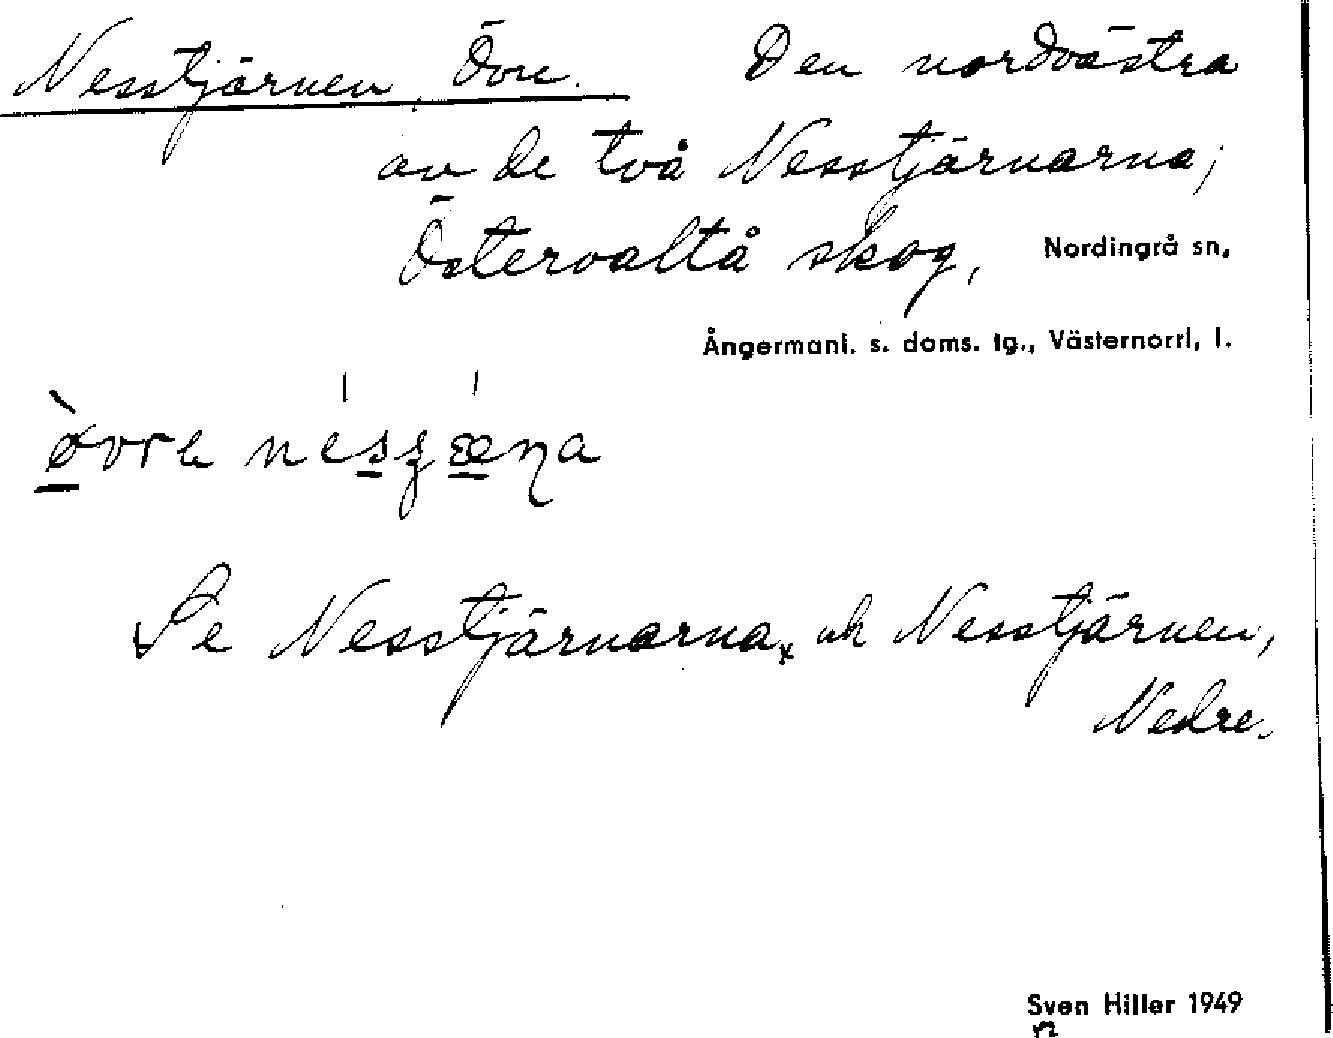 Nesstjärnen, Övre. Den nordvästra
av de två Nesstjärnarna;
Östervaltå skog, Nordingrå sn,
Ångermanl. s. doms. tg., Västernorrl. l.
Se Nesstjärnarna, och Nesstjärnen,
Nedre.
Sven Hiller 1949